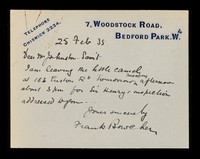 TELEPHONE
CHISWICK 3234.
7, WOODSTOCK ROAD,
BEDFORD PARK. W.4
25 Feb 35
Dear Mr Johnston Saint
I am leaving the little camel
at 183 Euston Rd tomorrow afternoon
about 3 pm for Sir Henry's inspection
addressed to you.
Yours sincerely
Frank